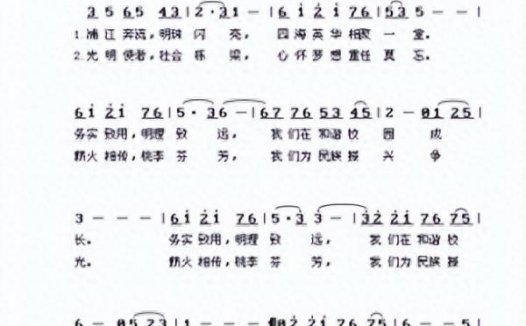 3 5 65 43 | 2·31 — | 6i 2i 76 | 53 5 — — |
1.浦江奔流,明珠闪亮, 四海英华相聚一堂。
2.光明使者,社会栋梁, 心怀梦想重任莫忘。
6i 2i 76 | 5·36 — | 67 76 53 45 | 2 — 01 25 |
务实致用,明理致远, 我们在和谐校园成
薪火相传,桃李芬芳, 我们为民族振兴争
3 — — — | 6i 2i 76 | 5·3 3 — | 32 21 76 75 |
长。 务实致用,明理致远, 我们在和谐校
光。 薪火相传,桃李芬芳, 我们为民族
6 — 05 23 | 1 — — — 02 21 76 75 | 6 — — 5 |